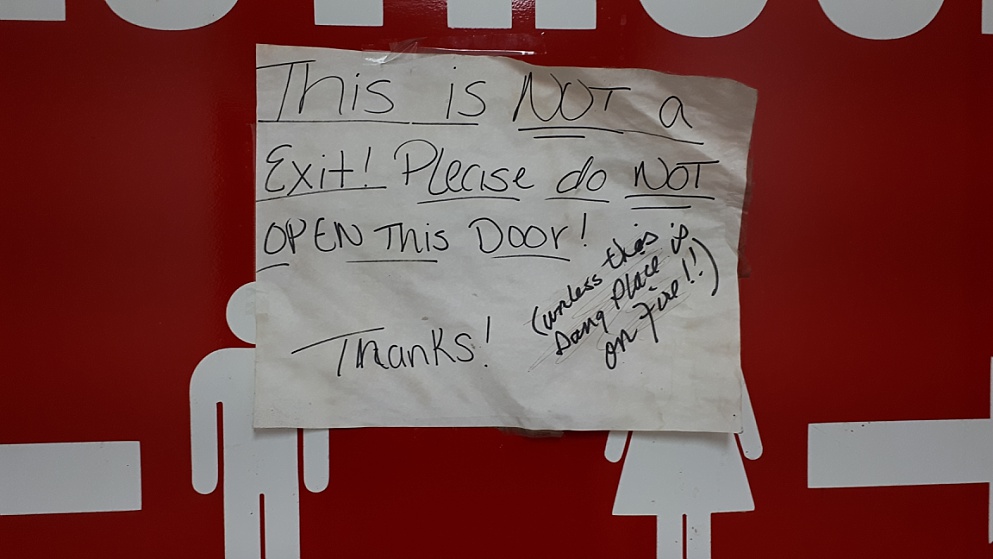 This is NOT a
Exit! Please do NOT
OPEN This Door!
(unless this
Dang Place is
on Fire!!)
Thanks!